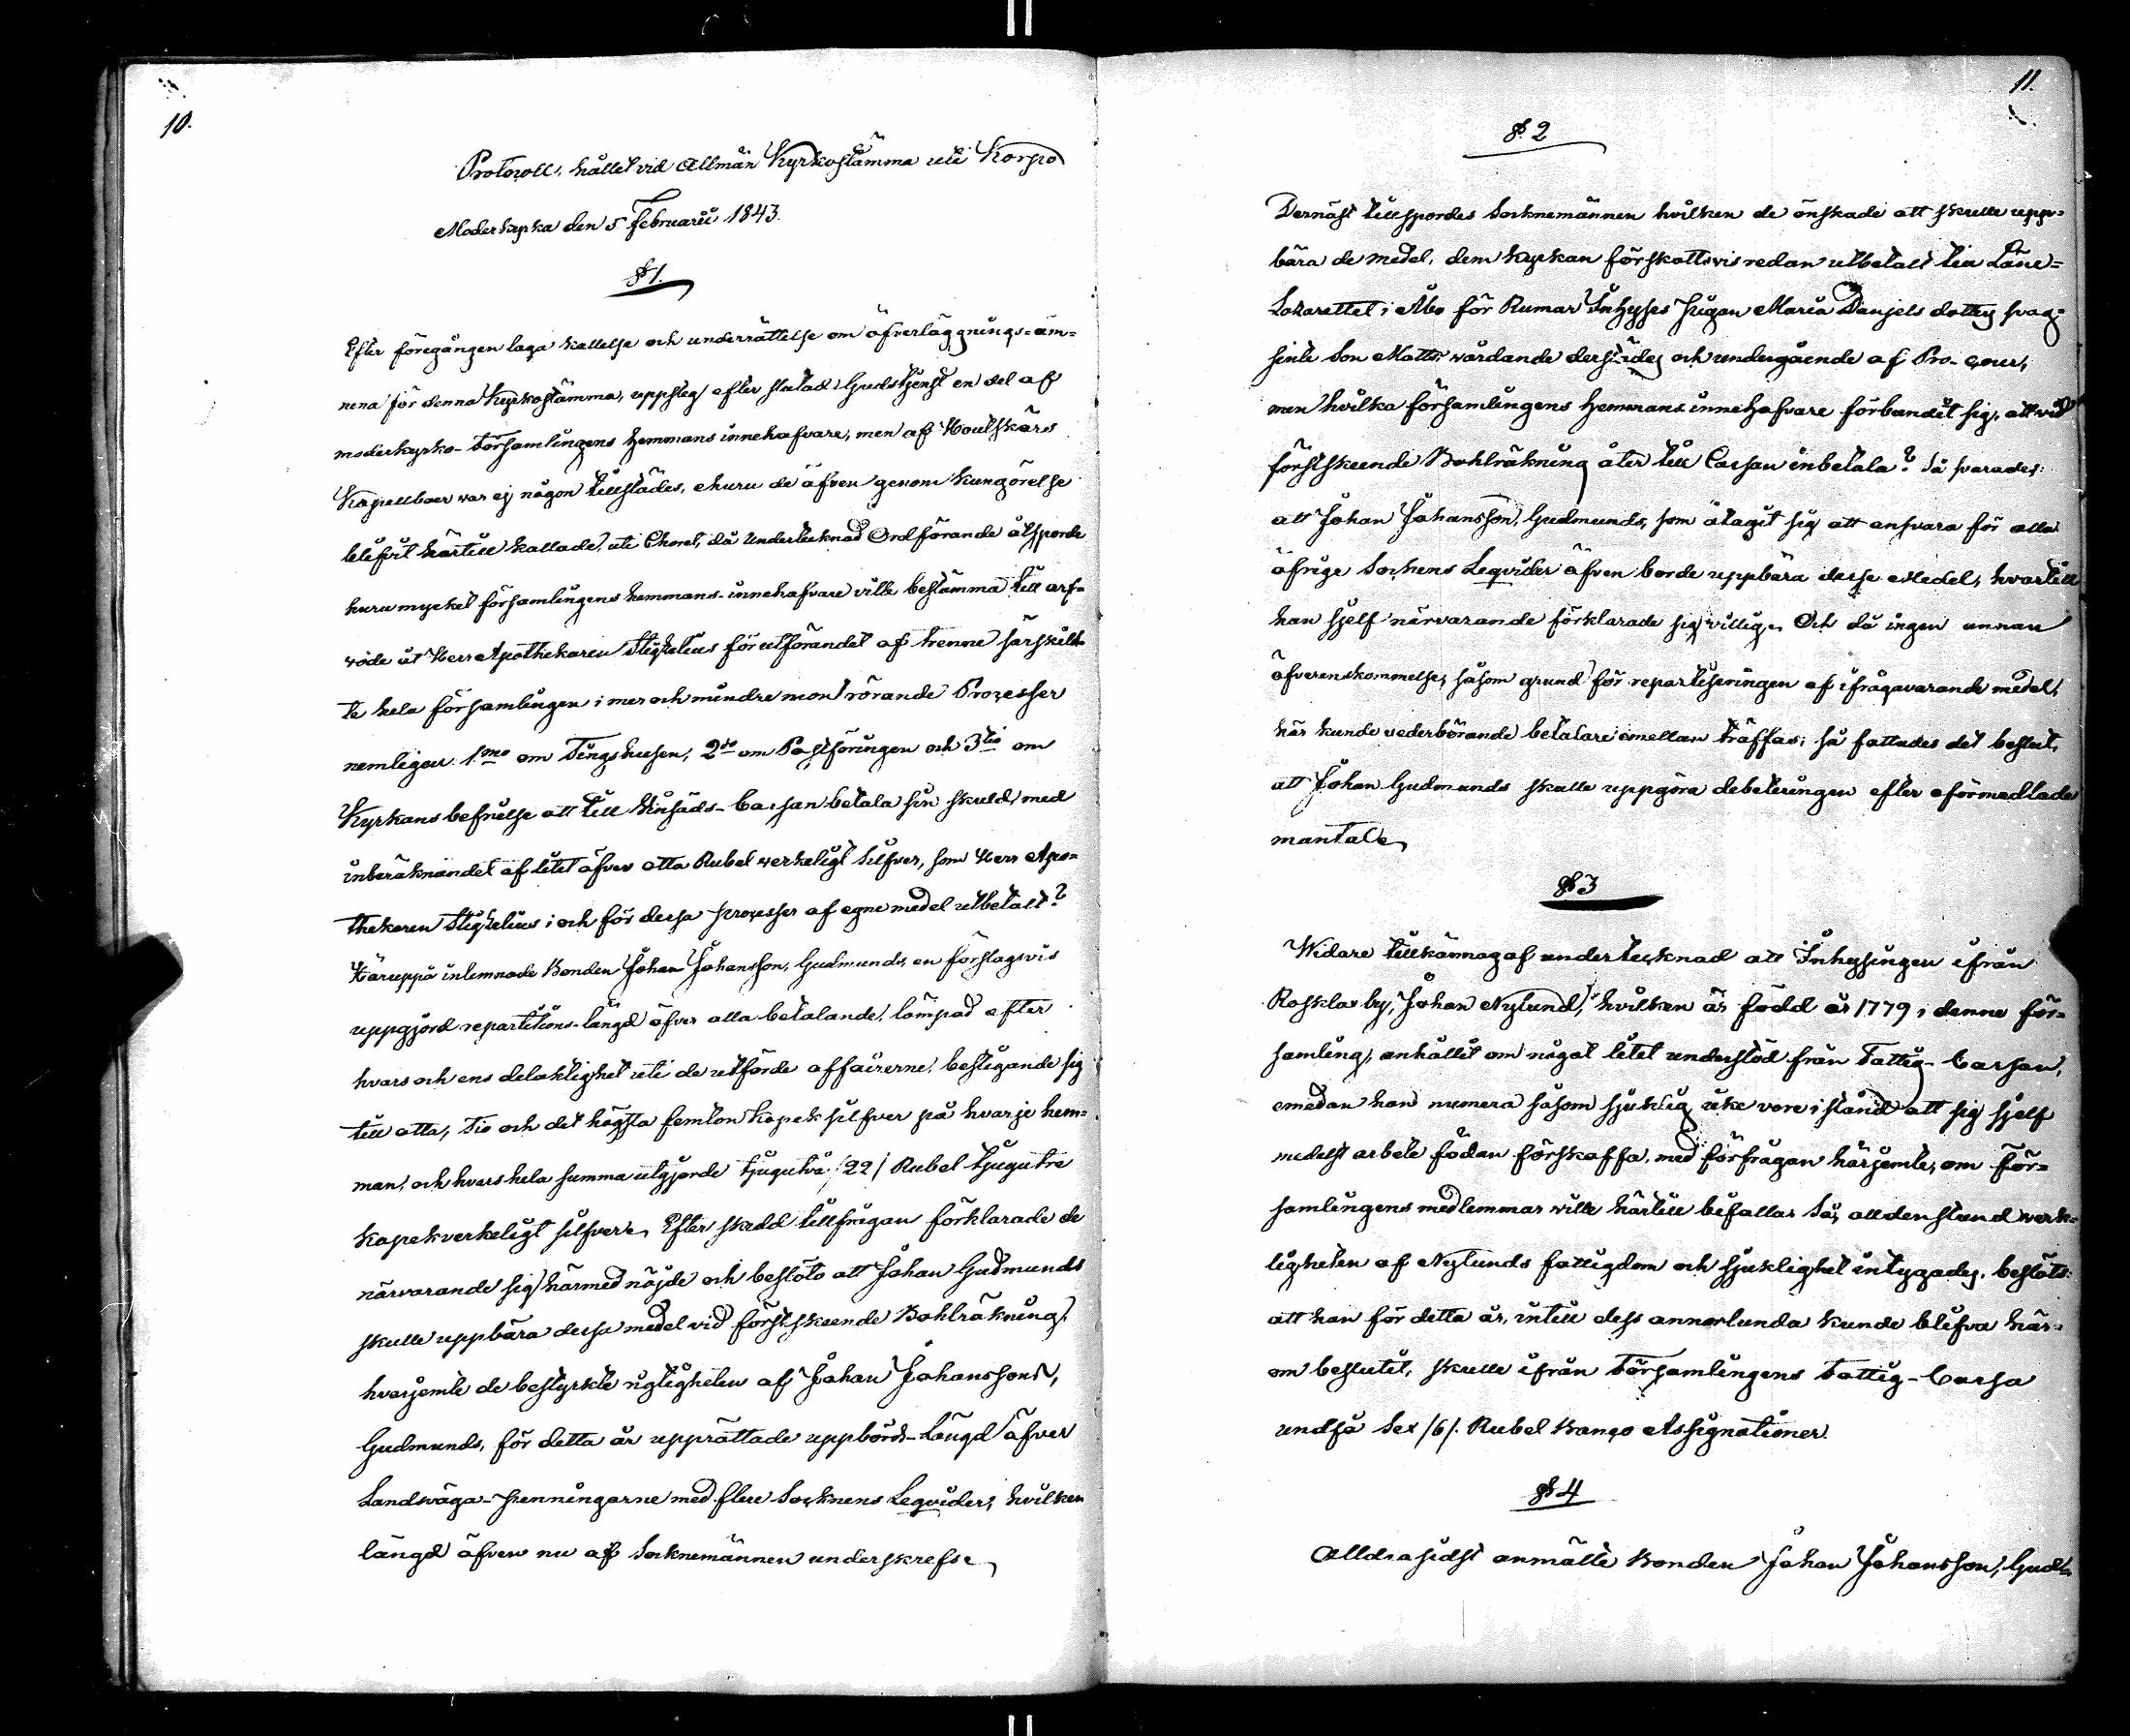 10.
Protocoll, hållet vid Allmän Kyrkostämma uti Korpo
Moderkyrka den 5 Februarii 1843.
§ 1.
Efter föregången laga kallelse och underrättelse om öfverläggnings-äm=
nena för denna Kyrkostämma, uppsteg efter slutad Gudstjenst en del af
moderkyrko-Församlingens hemmans innehafvare, men af Houtskärs
Kapellboer war ej någon tillstädes, ehuru de äfven genom Kungörelse
blifvit härtill kallade, uti Choret, då Undertecknad Ordförande åtsporde
huru mycket församlingens hemmans-innehafvare ville bestämma till arf=
wode åt Herr Apothekaren Stigzelius för utförandet af trenne särskilta
te hela församlingen i mer och mindre mon rörande Processer
nemligen: 1mo om Tingshusen, 2do om Postföringen och 3tio om
Kyrkans befrielse att till Krisäds-Cassan betala sin skuld, med
inberäknandet af litet öfver otta Rubel werkeligt Silfver, som Herr Apo=
thekaren Stigzelius i och för dessa processer af egne medel utbetalt?
Häruppå inlemnade Bonden Johan Johansson, Gudmunds, en förslagsvis
uppgjord repartitions-längd öfver alla betalande, lämpad efter
hvars och ens delaktighet uti de utförde affairerne, bestigande sig
till otta, tio och det högsta femton kopek silfver på hvarje hem=
man, och hvars hela summa utgjorde tjugutvå /22/ Rubel tjugutre
kopek verkeligt silfver. Efter skedd tillfrågan förklarade de
närvarande sig härmed nöjde och beslöto att Johan Gudmunds
skulle uppbära dessa medel vid förstskeende Bohlräkning,
hvarjemte de bestyrkte rigtigheten af Johan Johanssons,
Gudmunds, för detta år upprättade uppbörds-Längd öfver
Landsväga-penningarne med flere Socknens Leqvider, hvilken
längd äfven nu af Socknemännen underskrefs.
11.
§ 2
Dernäst tillspordes Socknemännen hvilken de önskade att skulle upp=
bära de medel, dem kyrkan förskottsvis redan utbetalt till Läne=
Lazarettet i Åbo för Rumar Inhyses Pigan Maria Danjels dotters svag=
sinte Son Matts wårdande derstädes och undergående af Pro-Cour,
men hvilka församlingens hemmans innehafvare förbundit sig, att wid
förstskeende Bohlräkning åter till Cassan inbetala? Då svarades:
att Johan Johansson, Gudmunds, som åtagit sig att ansvara för alla
öfrige Sockens Leqvider äfven borde uppbära desse Medel, hvartill
han sjelf närvarande förklarade sig willig. Och då ingen annan
öfverenskommelse, såsom grund för repartiseringen af ifrågavarande medel,
här kunde vederbörande betalare emellan träffas; så fattades det beslut,
att Johan Gudmunds skulle uppgöra debiteringen efter oförmedlade
mantal.
§ 3
Widare tillkännagaf undertecknad att Inhysingen ifrån
Roskla by, Johan Nylund, hvilken är född år 1779 i denne för=
samling, anhållit om något litet understöd från Fattig-Cassan,
emedan han numera såsom sjuklig icke vore i stånd att sig sjelf
medelst arbete födan förskaffa, med förfrågan härjemte, om för=
samlingens medlemmar wille härtill bifalla. Så, alldenstund werk=
ligheten af Nylunds fattigdom och sjuklighet intygades, beslöts:
att han för detta år, intill dess annorlunda kunde blifva här=
om beslutit, skulle ifrån Församlingens Fattig-Cassa
undfå Sex /6/. Rubel Banco Assignationer.
§ 4
Alldrasidst anmälte Bonden Johan Johansson, Gud=